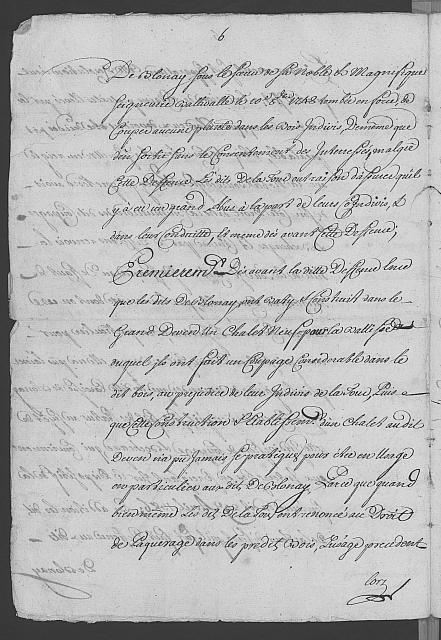 6
De Colonay sous le sceau de sa Noble & Magnifique
Seigneurie Baillivalle le 10e 8bre 1748 en force, de
Couper aucune plante dans les Bois Indivis, De meme que
d'en sortir sans le Consentement des Interessés, malgre
Cette Deffence, les dits De la Tour ont raison de qu'il
y a eu un grand abus à la part de leurs Condivis, et
dans leur Conduitte, et meme dès avant Cette Deffence,
Premierement Dès avant la ditte Deffence
que les dits De Colonay ont Baty & Construit dans le
Grand Deven un Chalet Neuf pour la
auquel ils ont fait un Coupage Considerable dans le
dit bois, au prejudice de leur Indivis de la Tour, Puis
que cette Construction & Etablissemt d'un Chalet au dit
Deven n'a pu Jamais se pratiquer, pour être en Usage
en particulier aux dits De Colonay, Parce que quand
bien meme les dits De la Tour ont renoncé au Droit
de Paquerage dans les predits Bois, l'usage precedent
lors